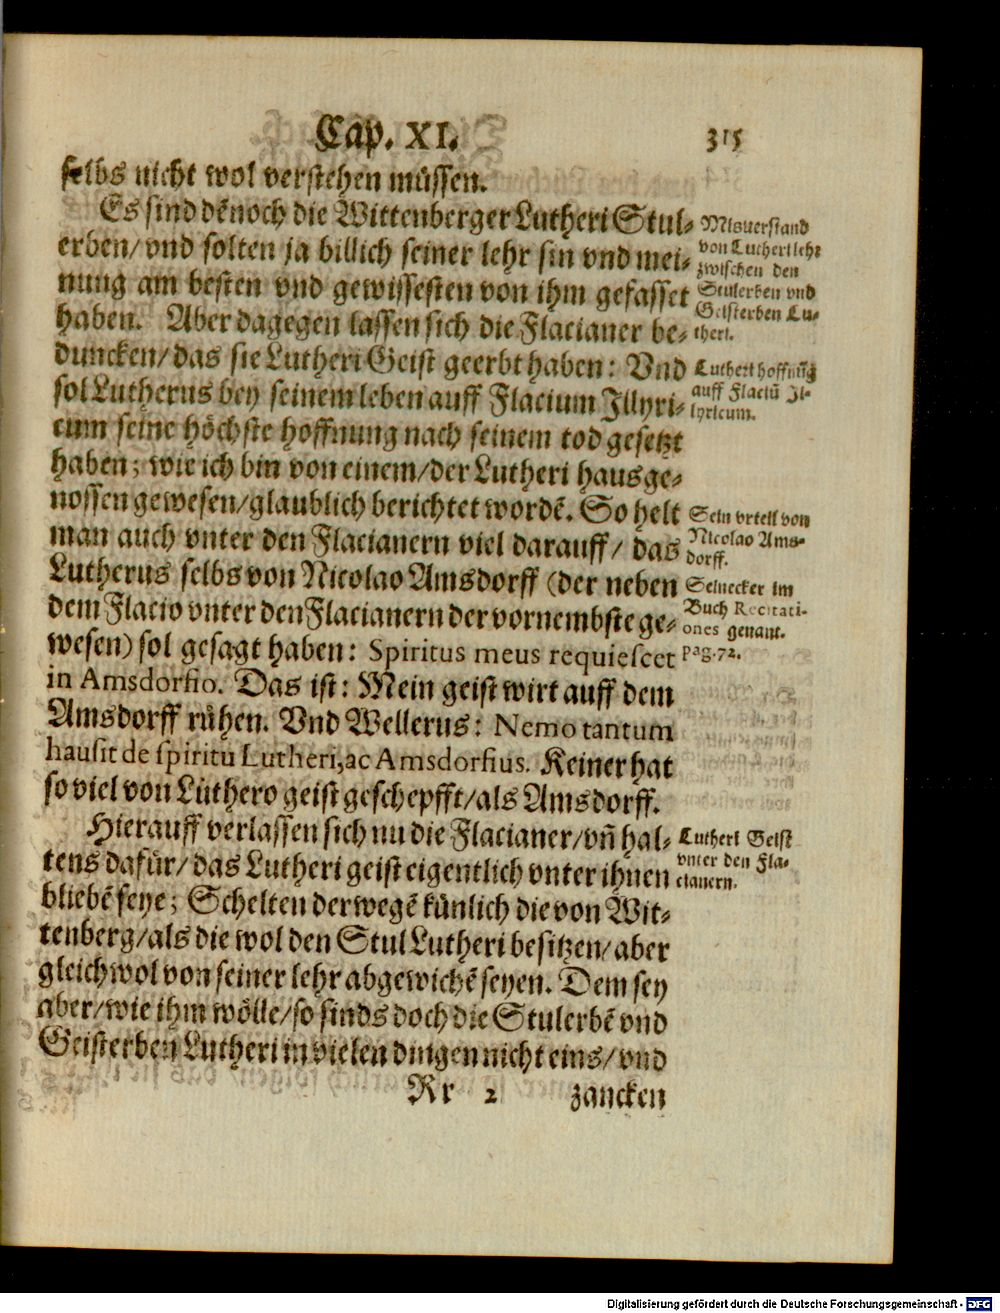 Cap. XI. 315
selbs nicht wol verstehen müssen.
Es sind dẽnoch die Wittenberger Lutheri Stul⸗
erben/ vnd solten ja billich seiner lehr sin vnd mei⸗
nung am besten vnd gewissesten von ihm gefasset
haben. Aber dagegen lassen sich die Flacianer be⸗
duncken/ das sie Lutheri Geist geerbt haben: Vnd
sol Lutherus bey seinem leben auff Flacium Illyri⸗
cum seine höchste hoffnung nach seinem tod gesetzt
haben; wie ich bin von einem/ der Lutheri hausge⸗
nossen gewesen/ glaublich berichtet wordẽ. So helt
man auch vnter den Flacianern viel darauff/ das
Lutherus selbs von Nicolao Amsdorff (der neben
dem Flacio vnter den Flacianern der vornembste ge⸗
wesen) sol gesagt haben: Spiritus meus requiescet
in Amsdorfio. Das ist: Mein geist wirt auff dem
Amsdorff rühen. Vnd Wellerus: Nemo tantum
hausit de spiritu Lutheri, ac Amsdorfius. Keiner hat
so viel von Luthero geist geschepfft/ als Amsdorff.
Hierauff verlassen sich nu die Flacianer/ vñ hal⸗
tens dafür/ das Lutheri geist eigentlich vnter ihnen
bliebẽ seye; Schelten derwegẽ künlich die von Wit⸗
tenberg/ als die wol den Stul Lutheri besitzen/ aber
gleichwol von seiner lehr abgewichẽ seyen. Dem sey
aber/ wie ihm wölle/ so sinds doch die Stulerbẽ vnd
Geisterben Lutheri in vielen dingen nicht eins/ vnd
Rr 2 zancken
Misuerstand
von Lutheri lehr
zwischen den
Stulerben vnd
Geisterben Lu⸗
theri.
Lutheri hoffnũg
auff Flaciũ Il⸗
lyricum.
Sein vrteil von
Nicolao Ams⸗
dorff.
Selnecker im
Buch Recitati-
ones genant.
pag. 72.
Lutheri Geist
vnter den Fla⸗
cianern.
Digitalisierung gefördert durch die Deutsche Forschungsgemeinschaft - DFG